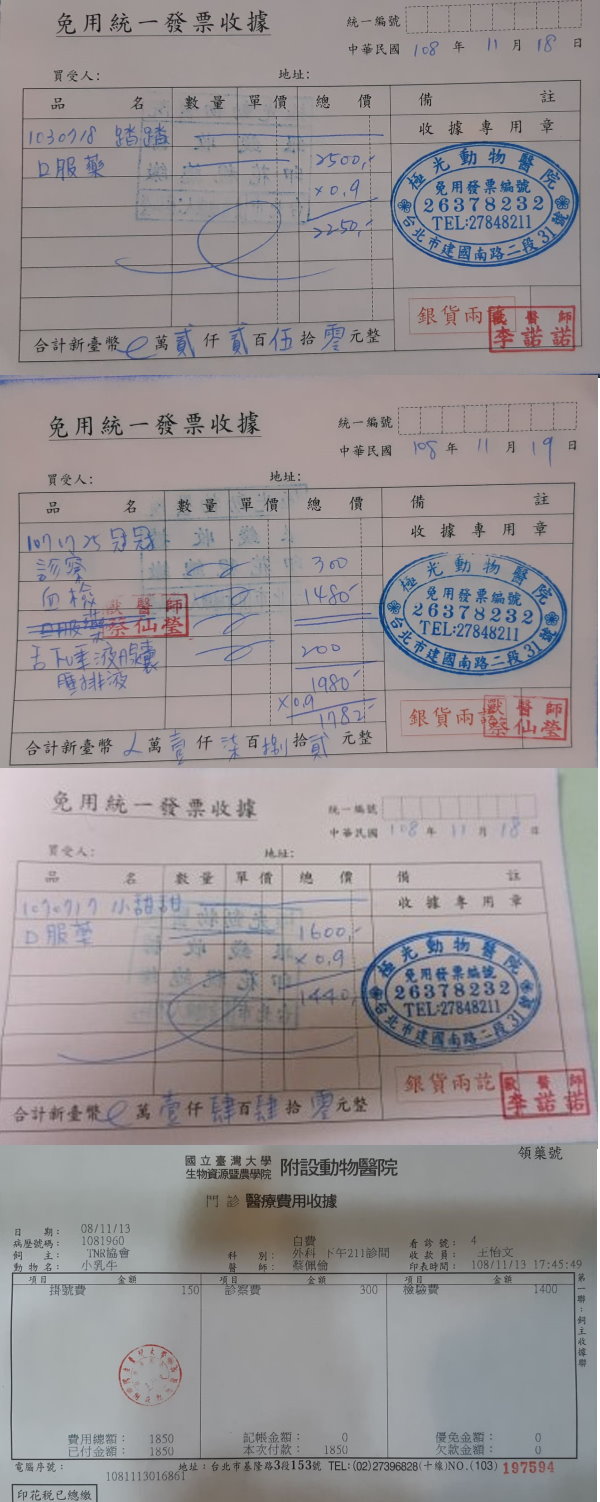 免用統一發票收據
統一編號
中華民國 108 年 11 月 18 日
買受人: 地址:
品 名 數量 單價 總 價 備 註
收據專用章
1030718 踏踏
口服藥 2500,-
x 0.9
2250,-
極光動物醫院
免用發票編號
26378232
TEL:27848211
台北市建國南路二段31號
銀貨兩訖
獸醫師
李諾諾
合計新臺幣 萬貳仟貳百伍拾零元整
免用統一發票收據
統一編號
中華民國 108 年 11 月 19 日
買受人: 地址:
品 名 數量 單價 總 價 備 註
收據專用章
1071725 冠冠
診察 300
血檢 1480-
口服藥
獸醫師
蔡仙瑩
舌下唾液腺囊 200
腫排液 1980-
x0.9
1782-
極光動物醫院
免用發票編號
26378232
TEL:27848211
台北市建國南路二段31號
銀貨兩訖
獸醫師
蔡仙瑩
合計新臺幣 萬壹仟柒百捌拾貳元整
免用統一發票收據
統一編號
中華民國 108 年 11 月 18 日
買受人: 地址:
品 名 數量 單價 總 價 備 註
收據專用章
1070717 小甜甜
口服藥 1600,-
x 0.9
1440,-
極光動物醫院
免用發票編號
26378232
TEL:27848211
台北市建國南路二段31號
銀貨兩訖
獸醫師
李諾諾
合計新臺幣 萬壹仟肆百肆拾零元整
領藥號
國立臺灣大學
生物資源暨農學院 附設動物醫院
門診 醫療費用收據
日 期: 08/11/13
病歷號碼: 1081960 自費 看診號: 4
飼 主: TNR協會 科 別: 外科 下午211診間 收款員: 王怡文
動物名: 小乳牛 醫 師: 蔡佩倫 印表時間: 108/11/13 17:45:49
項目 金額 項目 金額 項目 金額
掛號費 150 診察費 300 檢驗費 1400
第一聯:飼主收據聯
費用總額: 1850 記帳金額: 0 優免金額: 0
已付金額: 1850 本次付款: 1850 欠款金額: 0
電腦序號: 1081113016861 地址:台北市基隆路3段153號 TEL:(02)27396828(十線)NO.(103) 197594
印花稅已總繳